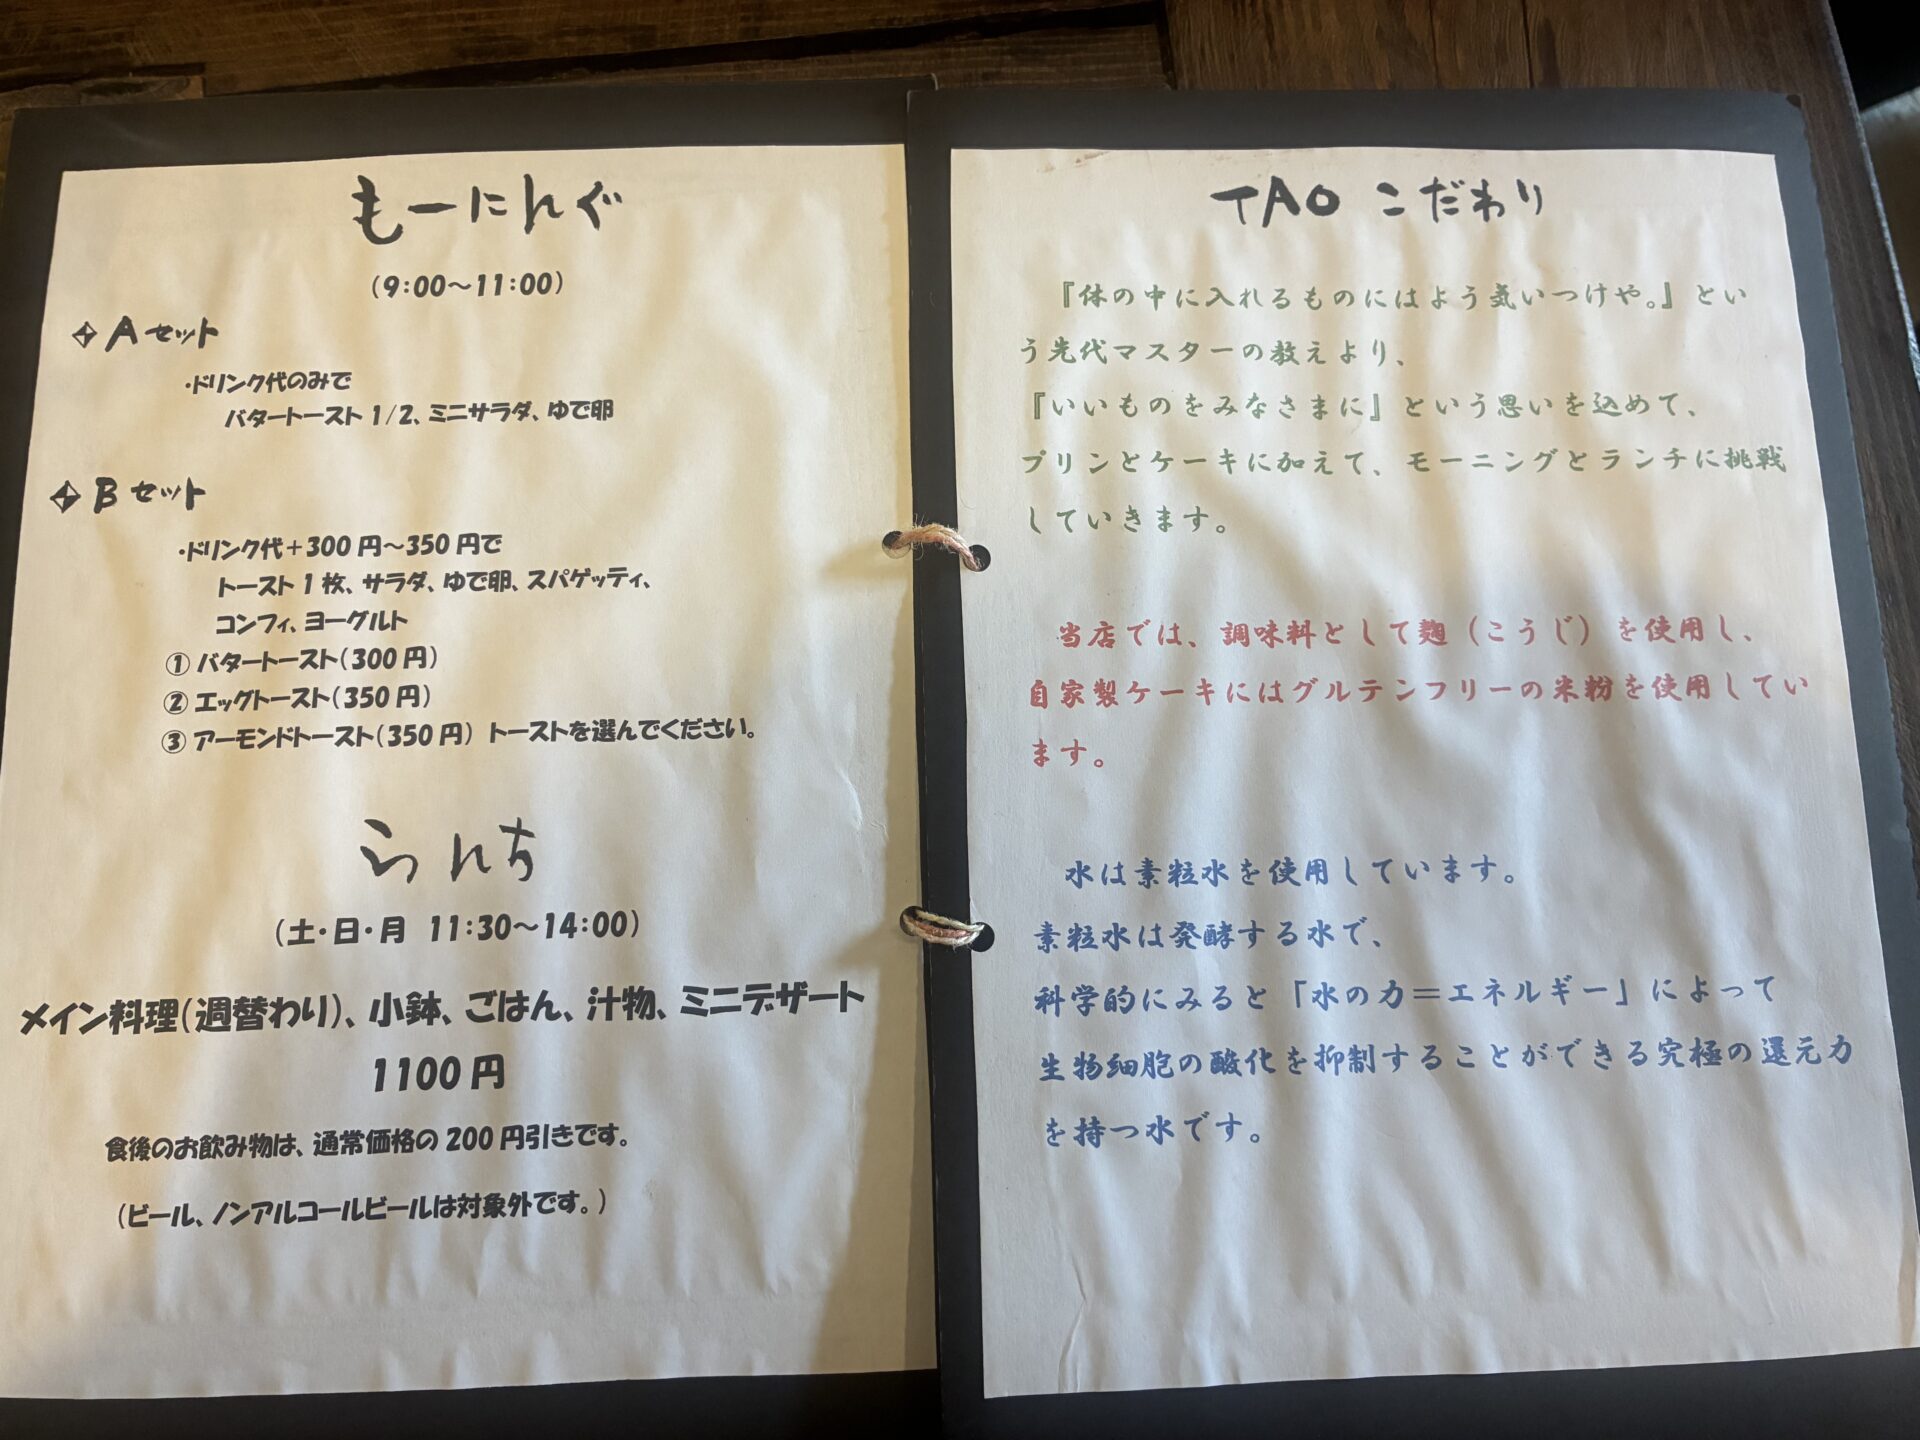 もーにんぐ
(9:00～11:00)
Aセット
・ドリンク代のみで
バタートースト 1/2、ミニサラダ、ゆで卵
Bセット
・ドリンク代＋300円～350円で
トースト1枚、サラダ、ゆで卵、スパゲッティ、
コンフィ、ヨーグルト
① バタートースト(300円)
② エッグトースト(350円)
③ アーモンドトースト(350円) トーストを選んでください。
らんち
(土・日・月 11:30～14:00)
メイン料理(週替わり)、小鉢、ごはん、汁物、ミニデザート
1100円
食後のお飲み物は、通常価格の200円引きです。
(ビール、ノンアルコールビールは対象外です。)
TAO こだわり
『体の中に入れるものにはよう気いつけや。』とい
う先代マスターの教えより、
『いいものをみなさまに』という思いを込めて、
プリンとケーキに加えて、モーニングとランチに挑戦
していきます。
当店では、調味料として麹（こうじ）を使用し、
自家製ケーキにはグルテンフリーの米粉を使用してい
ます。
水は素粒水を使用しています。
素粒水は発酵する水で、
科学的にみると「水の力＝エネルギー」によって
生物細胞の酸化を抑制することができる究極の還元力
を持つ水です。